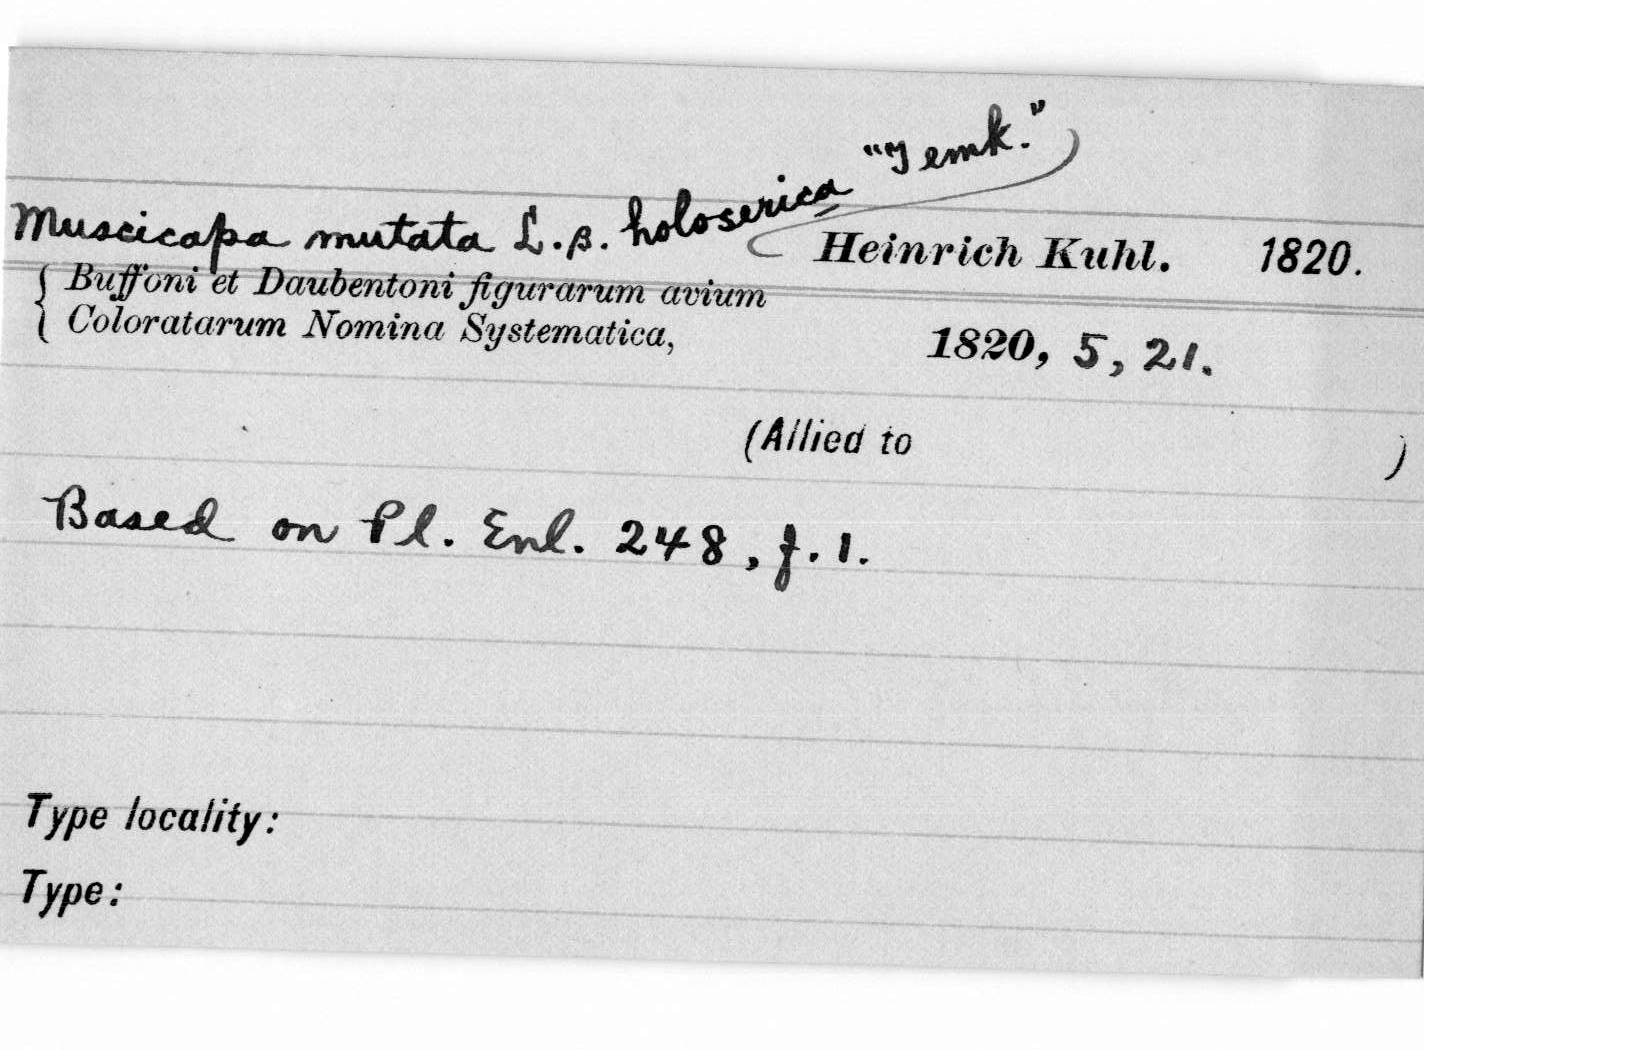 Muscicapa mutata L. β. holoserica "Temk." Heinrich Kuhl. 1820.
Buffoni et Daubentoni figurarum avium
Coloratarum Nomina Systematica, 1820, 5, 21.
(Allied to )
Based on Pl. Enl. 248, f. 1.
Type locality:
Type: